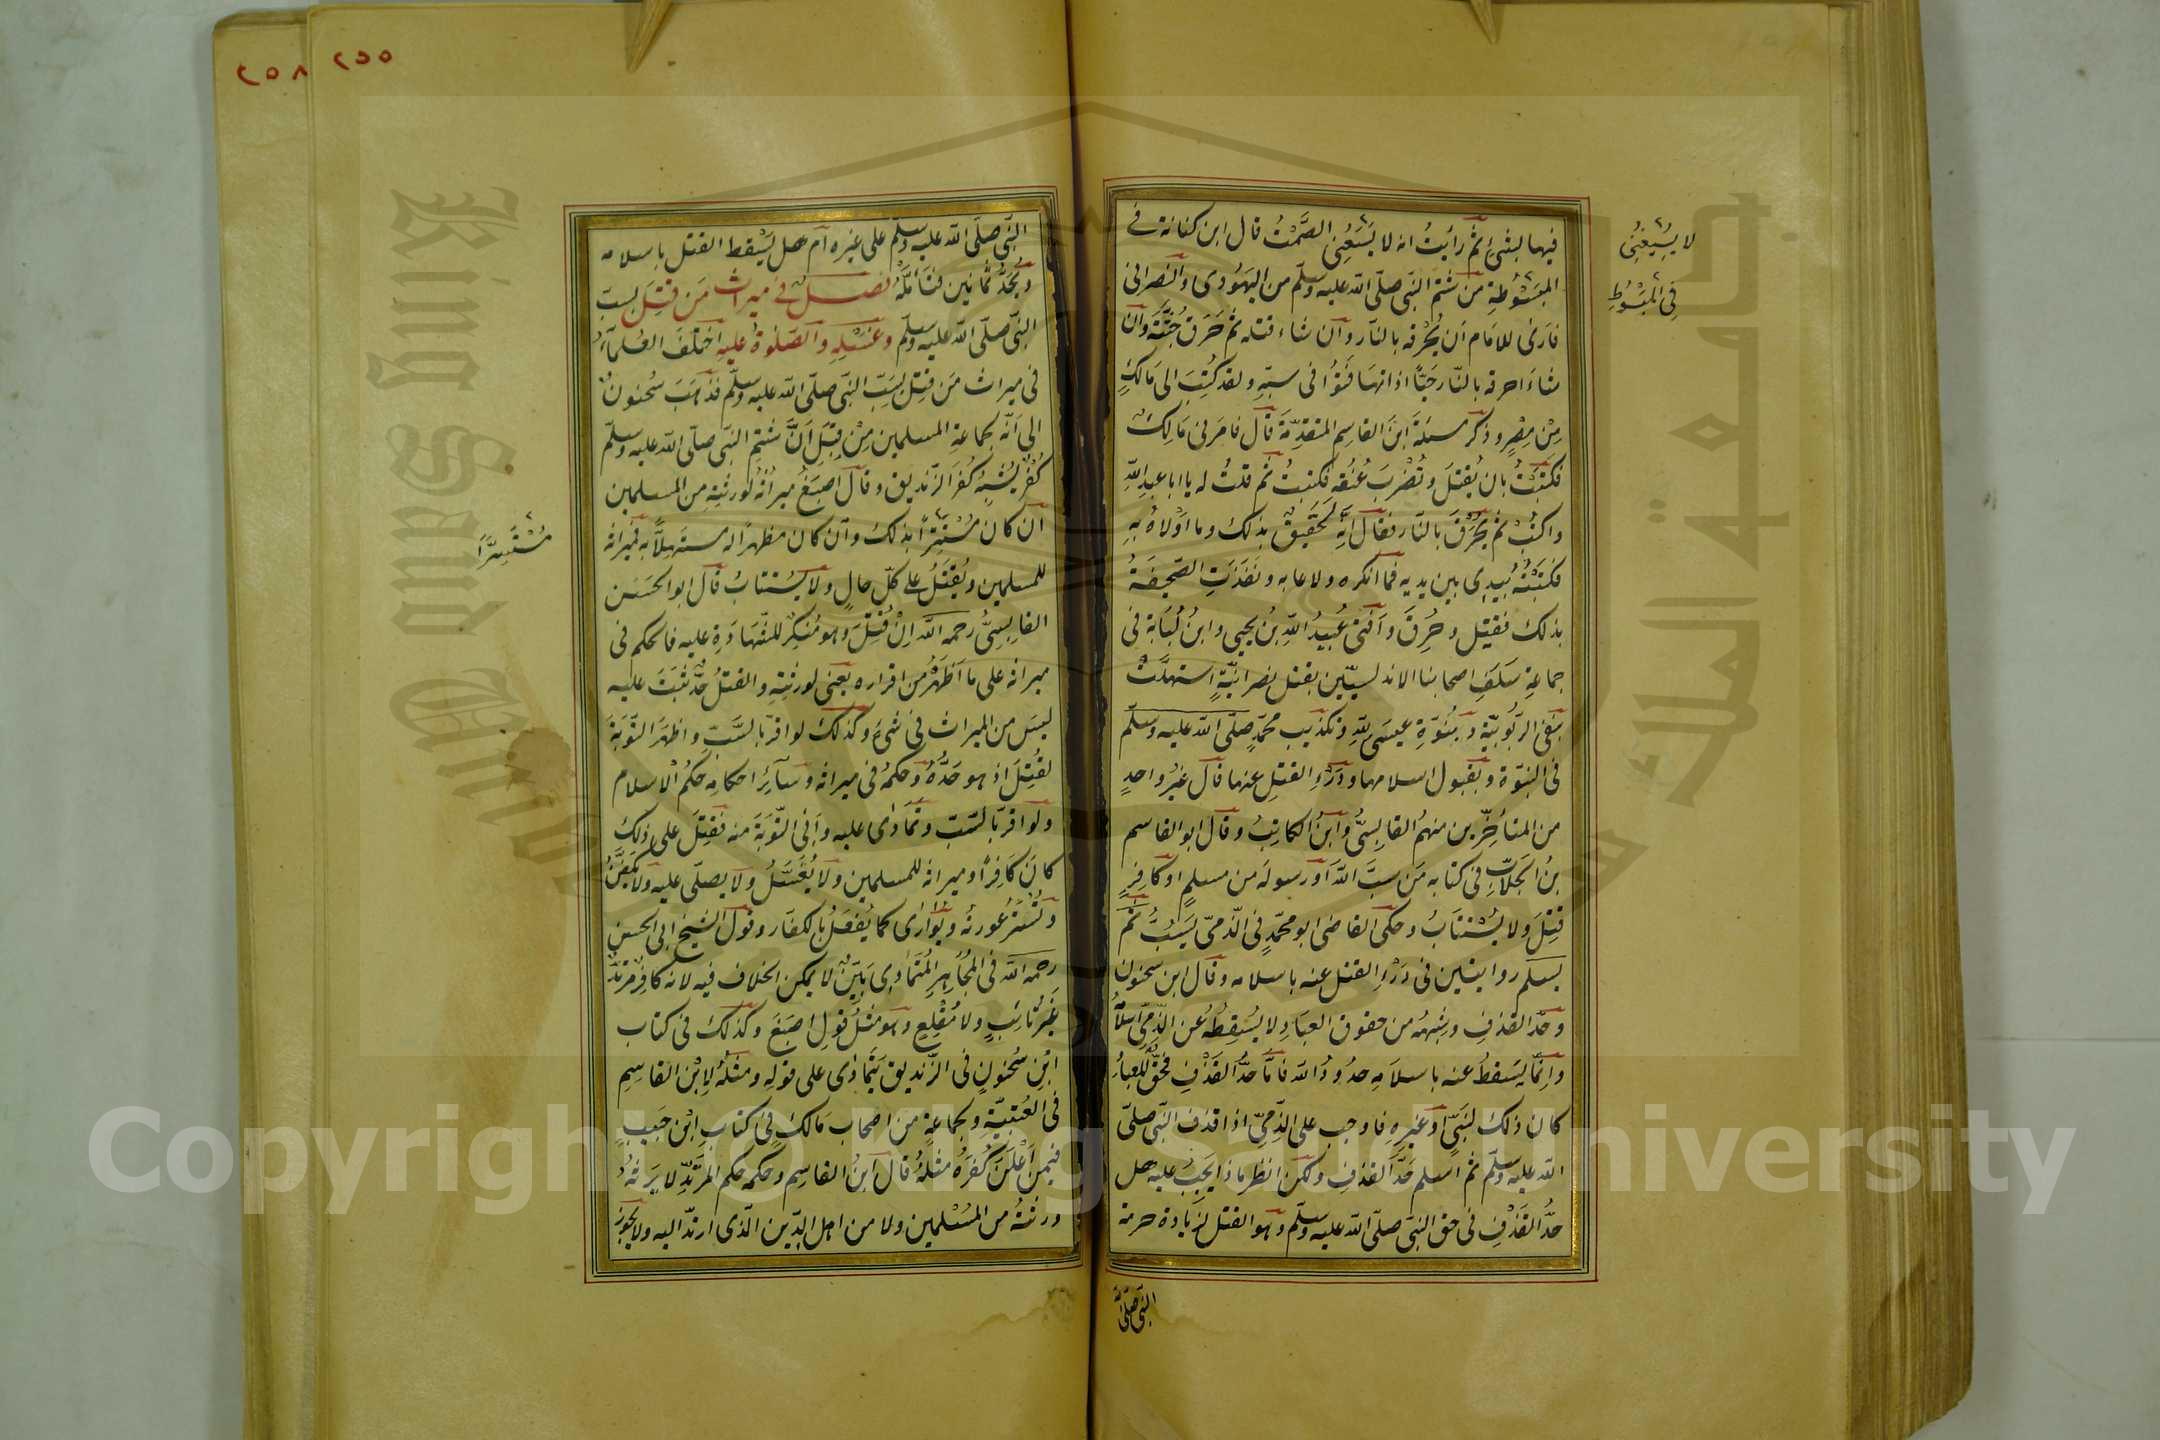 فيها بشئ ثم رأيت انه لا يسعنى الصمت قال ابن كنانة فى
المبسوطة من شتم النبى صلى الله عليه وسلم من اليهودى والنصرانى
فارى للامام ان يحرقه بالنار وان شاء قتله ثم حرق جثته وان
شاء احرقه بالنار حيا اذا تهافتوا فى سبه ولقد كتب الى مالك
من مصر وذكر مسئلة ابن القاسم المتقدمة قال فامرنى مالك
فكتبت بان يقتل وتضرب عنقه فكتبت ثم قلت له يا ابا عبد الله
واكتب ثم يحرق بالنار فقال انه لحقيق بذلك وما اولاه به
فكتبته بيدى بين يديه فما انكره ولا عابه ونفذت الصحيفة
بذلك فقتل وحرق وافتى عبيد الله بن يحيى وابن لبابة فى
جماعة سلف اصحابنا الاندلسيين بقتل نصرانية استهلت
بنفى الربوبية وبنوة عيسى لله وتكذيب محمد صلى الله عليه وسلم
فى النبوة وبقبول اسلامها ودرء القتل عنها قال غير واحد
من المتأخرين منهم القابسى وابن الكاتب وقال ابو القاسم
بن الجلاب فى كتابه من سب الله او رسوله من مسلم او كافر
قتل ولا يستتاب وحكى القاضى ابو محمد فى الذمى يسب ثم
يسلم روايتين فى درء القتل عنه باسلامه وقال ابن سحنون
وحد القذف وشبهه من حقوق العباد لا يسقطه عن الذمى اسلامه
وانما يسقط عنه باسلامه حدود الله فاما حد القذف فحق للعباد
كان ذلك لنبى او غيره فاوجب على الذمى اذا قذف النبى صلى
الله عليه وسلم ثم اسلم حد القذف ولكن انظر ماذا يجب عليه هل
حد القذف فى حق النبى صلى الله عليه وسلم وهو القتل لزيادة حرمة
النبى صلى الله
لا يسعنى
فى المبسوط
٢٥٥
٢٥٨
النبى صلى الله عليه وسلم على غيره ام هل يسقط القتل باسلامه
ويحد ثمانين فتأمله فصل فى ميراث من قتل بسب
النبى صلى الله عليه وسلم وغسله والصلوة عليه اختلف العلماء
فى ميراث من قتل بسب النبى صلى الله عليه وسلم فذهب سحنون
الى انه لجماعة المسلمين من قبل ان شتم النبى صلى الله عليه وسلم
كفر يشبه كفر الزنديق وقال اصبغ ميراثه لورثته من المسلمين
ان كان مستترا بذلك وان كان مظهرا له مستهلا به فميراثه
للمسلمين ويقتل على كل حال ولا يستتاب قال ابو الحسن
القابسى رحمه الله ان قتل وهو منكر للشهادة عليه فالحكم فى
ميراثه على ما اظهر من اقراره يعنى لورثته والقتل حد ثبت عليه
ليس من الميراث فى شىء وكذلك لو اقر بالسب واظهر التوبة
لقتل اذ هو حده وحكمه فى ميراثه وسائر احكامه حكم الاسلام
ولو اقر بالسب وتمادى عليه وابى التوبة منه فقتل على ذلك
كان كافرا وميراثه للمسلمين ولا يغسل ولا يصلى عليه ولا يكفن
وتستر عورته ويوارى كما يفعل بالكفار وقول الشيخ ابى الحسن
رحمه الله فى المجاهر المتمادى بين لا يمكن الخلاف فيه لانه كافر مرتد
غير تائب ولا مقلع وهو مثل قول اصبغ وكذلك فى كتاب
ابن سحنون فى الزنديق يتمادى على قوله ومثله لابن القاسم
فى العتبية ولجماعة من اصحاب مالك فى كتاب ابن حبيب
فيمن اعلن كفره مثله قال ابن القاسم وحكمه حكم المرتد لا يرثه
ورثته من المسلمين ولا من اهل الدين الذى ارتد اليه ولا يجوز
مستسرا
King Saud University
جامعة الملك سعود
Copyright © King Saud University